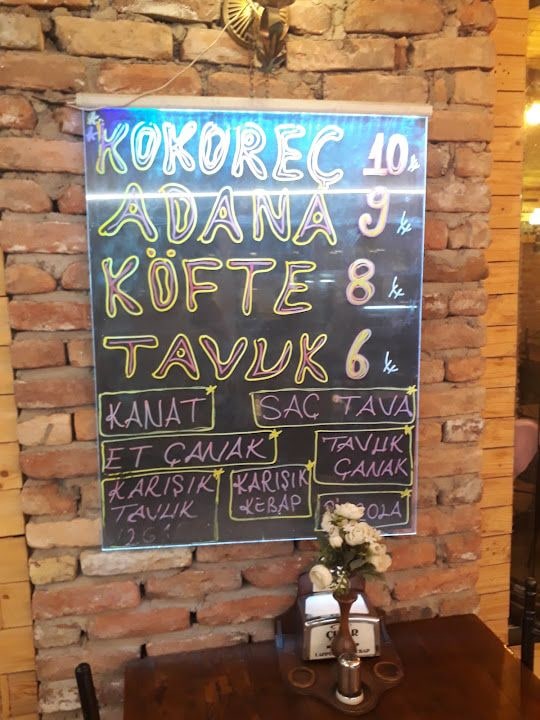 KOKOREÇ 10 ₺
ADANA 9 ₺
KÖFTE 8 ₺
TAVUK 6 ₺
KANAT
SAÇ TAVA
ET ÇANAK
TAVUK
ÇANAK
KARIŞIK
TAVUK
KARIŞIK
KEBAP